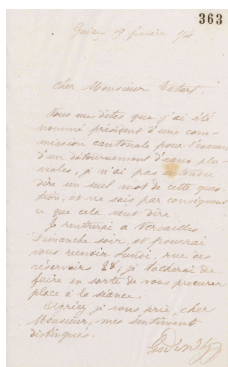 363
Guise 19 février 74
Cher Monsieur Tatart.
Vous me dites que j'ai été
nommé président d'une com-
mission cantonale pour l'examen
d'un détournement d'eaux plu-
viales, je n'ai pas entendu
dire un seul mot de cette ques-
tion, et ne sais par conséquent
ce que cela veut dire.
Je rentrerai à Versailles
Dimanche soir, et pourrai
vous recevoir Lundi, rue des
réservoirs 28, je tacherai de
faire en sorte de vous procurer
place à la séance.
Agréez, je vous prie, cher
Monsieur, mes sentiment
distingués.
Godin